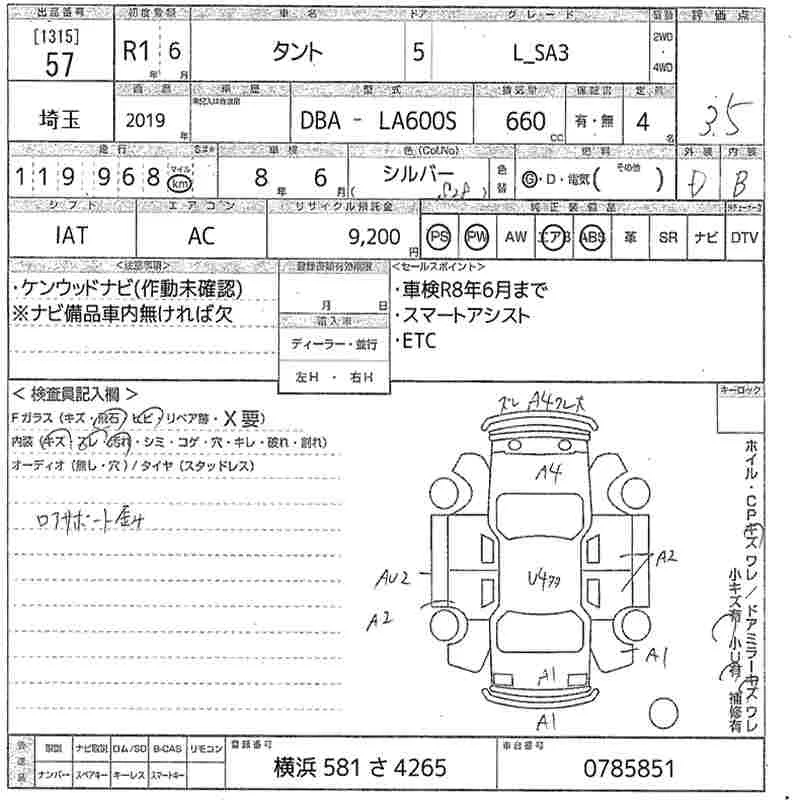 出品番号 初度登録 車名 ドア グレード 評価点
[1315]
57 R1年 6月 タント 5 L_SA3 2WD・4WD
埼玉 2019年 車歴 型式 排気量 保証書 定員
DBA - LA600S 660cc 有・無 4名 3.5
走行 車検 色(Col.No) 燃料 外装 内装
119968 マイル km 8年 6月 シルバー 色替 G・D・電気( その他 ) D B
シフト エアコン リサイクル預託金 純正装備品
IAT AC 9,200円 PS PW AW エアB ABS 革 SR ナビ DTV
<注意事項> 登録書類有効期限 <セールスポイント>
・ケンウッドナビ(作動未確認) 月 日 ・車検R8年6月まで
※ナビ備品車内無ければ欠 輸入車 ・スマートアシスト
ディーラー・並行 ・ETC
左H ・ 右H
<検査員記入欄> キーロック
Fガラス (キズ・飛石・ヒビ) リペア跡・X要)
内装 (キズ・スレ・汚れ・シミ・コゲ・穴・キレ・破れ・割れ)
オーディオ (無し・穴) / タイヤ (スタッドレス)
ロアサポート歪み
ズレ A4ワレ大
A4
A2
AU2
U4
A2
A1
A1
A1
ホイル・CPキズ ワレ / ドアミラーキズ ワレ
小キズ有 小U有 補修有
取説 ナビ取説 ロム/SD B-CAS リモコン 登録番号 車台番号
ナンバー スペアキー キーレス スマートキー 横浜 581 さ 4265 0785851